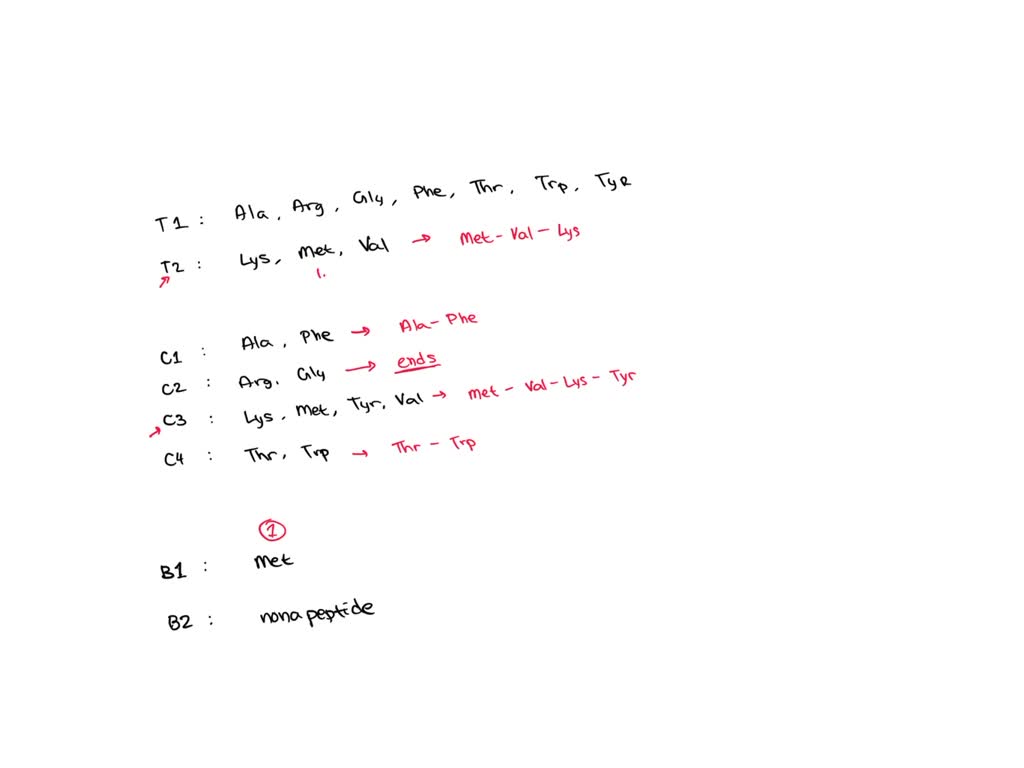 T1 : Ala, Arg, Gly, Phe, Thr, Trp, Tyr
T2 : Lys, Met, Val → Met - Val - Lys
1.
C1 : Ala, Phe → Ala - Phe
C2 : Arg, Gly → ends
C3 : Lys, Met, Tyr, Val → Met - Val - Lys - Tyr
C4 : Thr, Trp → Thr - Trp
1
B1 : Met
B2 : nonapeptide